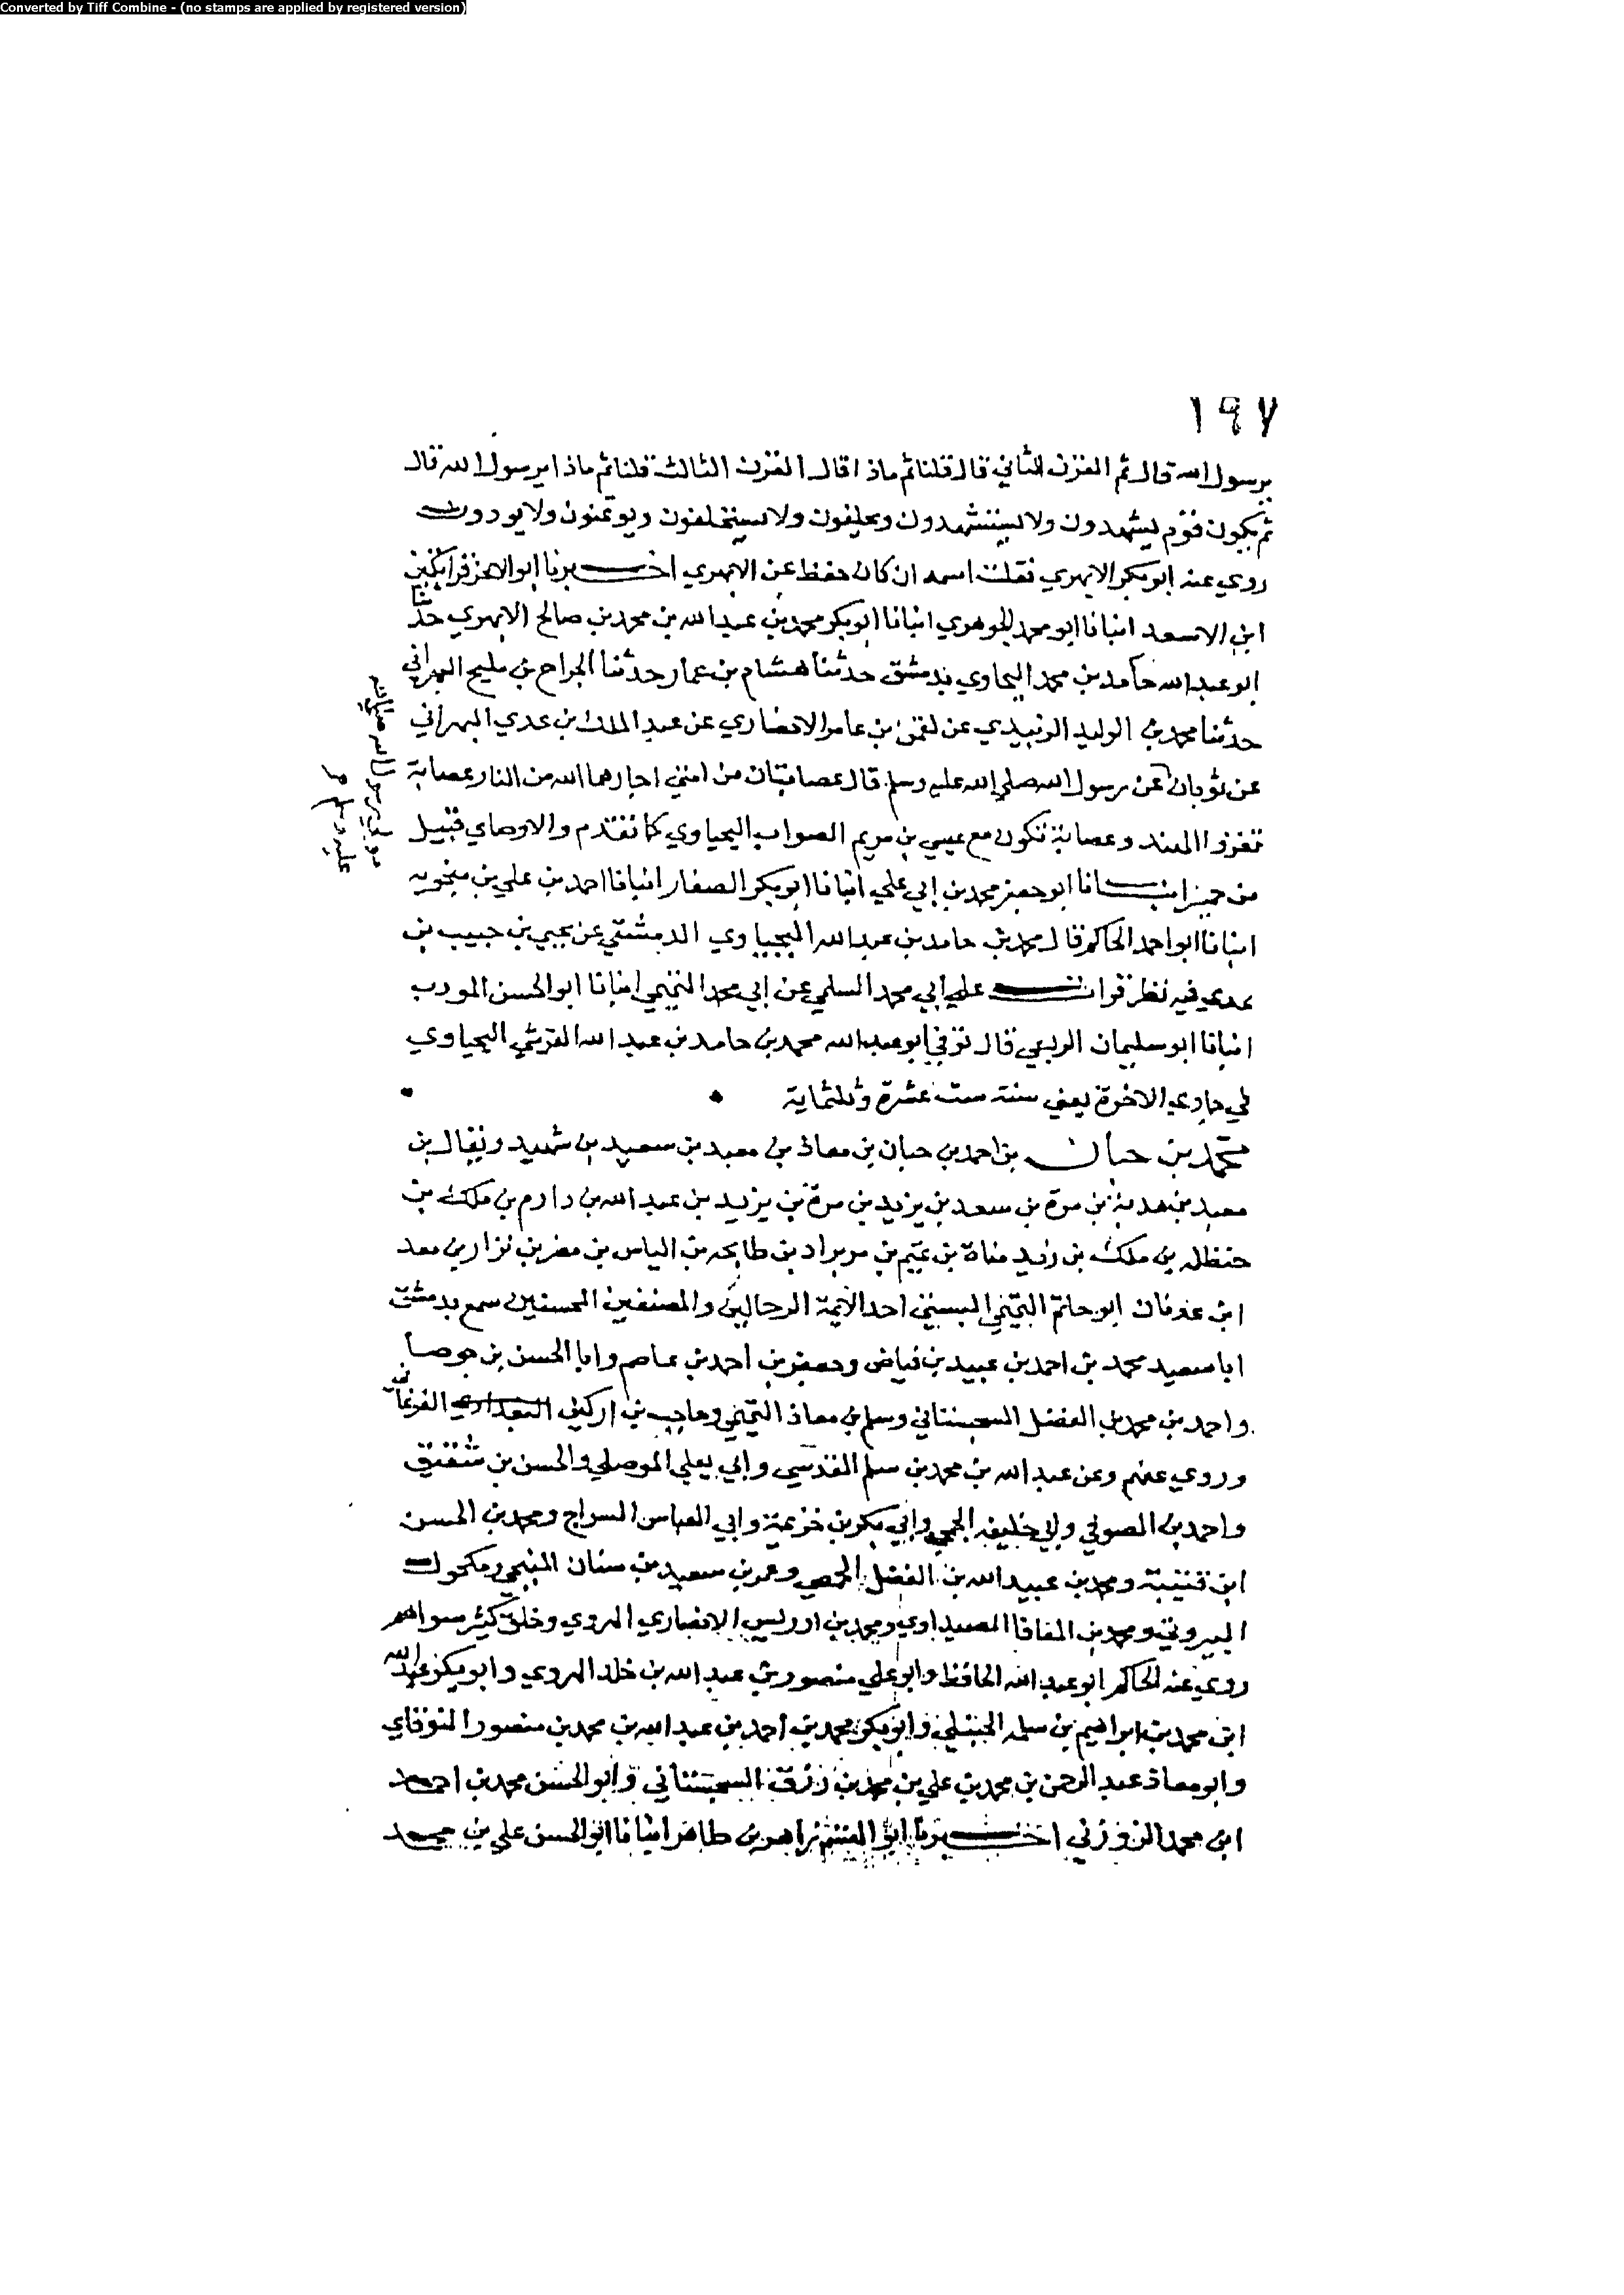 Converted by Tiff Combine - (no stamps are applied by registered version)
١٩٧
يرسول الله قال ثم القرن الثاني قال قلنا ثم ماذا قال القرن الثالث قلنا ثم ماذا يرسول الله قال
ثم يكون قوم يشهدون ولا يستشهدون ويحلفون ولا يستحلفون ويوتمنون ولا يودون
روي عنه ابو بكر الابهري فقلت اسمه ان كان حفظ عن الابهري اخبرنا ابو الاعز قراتكين
ابن الاسعد انبانا ابو محمد الجوهري انبانا ابو بكر محمد بن عبد الله بن محمد بن صالح الابهري حدثنا
ابو عبد الله حامد بن محمد اليحاوي بدمشق حدثنا هشام بن عمار حدثنا الجراح بن مليح البهراني
حدثنا محمد بن الوليد الزبيدي عن لقمن بن عامر الانصاري عن عبد الملك بن عدي البهراني
عن ثوبان عن رسول الله صلى الله عليه وسلم قال عصابتان من امتي اجارهما الله من النار عصابة
مولى رسول الله صلى الله
عليه وسلم
تغزوا الهند وعصابة تكون مع عيسى بن مريم الصواب اليحياوي كما تقدم والاوصاي قبيل
من حمير انبانا ابو جعفر محمد بن ابي علي انبانا ابو بكر الصفار انبانا احمد بن علي بن منجويه
انبانا ابو احمد الحاكم قال محمد بن حامد بن عبد الله اليحياوي الدمشقي عن يحيى بن حبيب بن
عدي فيه نظر قرات على ابي محمد السلمي عن ابي محمد التميمي انبانا ابو الحسن المودب
انبانا ابو سليمان الربعي قال توفي ابو عبد الله محمد بن حامد بن عبد الله القرشي اليحياوي
في جمادى الاخرة يعني سنة ست عشرة وثلثماية
محمد بن حبان بن احمد بن حبان بن معاذ بن معبد بن سعيد بن شهيد ويقال بن
معبد بن هدبة بن مرة بن سعد بن يزيد بن مرة بن يزيد بن عبد الله بن دارم بن ملك بن
حنظله بن ملك بن زيد مناة بن تميم بن مر بن اد بن طابخه بن الياس بن مضر بن نزار بن معد
ابن عدنان ابو حاتم التميمي البستي احد الايمة الرحالين والمصنفين المحسنين سمع بدمشق
ابا سعيد محمد بن احمد بن عبيد بن فياض وجعفر بن احمد بن عاصم وابا الحسن بن جوصا
واحمد بن محمد بن الفضل السجستاني وسلم بن معاذ التميمي وحاجب بن اركين الفرغاني
وروي عنهم وعن عبد الله بن محمد بن سلم المقدسي وابي يعلى الموصلي والحسن بن سفين
واحمد بن الصوفي وابي خليفه الجمحي وابي بكر بن خزيمة وابي العباس السراج ومحمد بن الحسن
ابن قتيبة ومحمد بن عبيد الله بن الفضل الحمصي وعمر بن سعيد بن سنان المنبجي ومكحول
البيروتي ومحمد بن المعافا الصيداوي ومحمد بن ادريس الانصاري الهروي وخلق كثير سواهم
روى عنه الحاكم ابو عبد الله الحافظ وابو علي منصور بن عبد الله بن خلد الهروي وابو بكر عبد الله
ابن محمد بن ابراهيم بن سلمه الحنبلي وابو بكر محمد بن احمد بن عبد الله بن محمد بن منصور النوقاي
وابو معاذ عبد الرحمن بن محمد بن علي بن محمد بن رزق السجستاني وابو الحسن محمد بن احمد
ابن محمد الزوزني اخبرنا ابو القسم زاهر بن طاهر انبانا ابو الحسن علي بن محمد